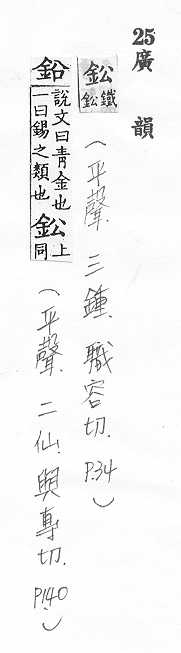 25廣韻
鈆 鐵鈆 (平聲.三鍾.職容切.P.34)
鉛 說文曰青金也一曰錫之類也 鈆 上同 (平聲.二仙.與專切.P.140.)